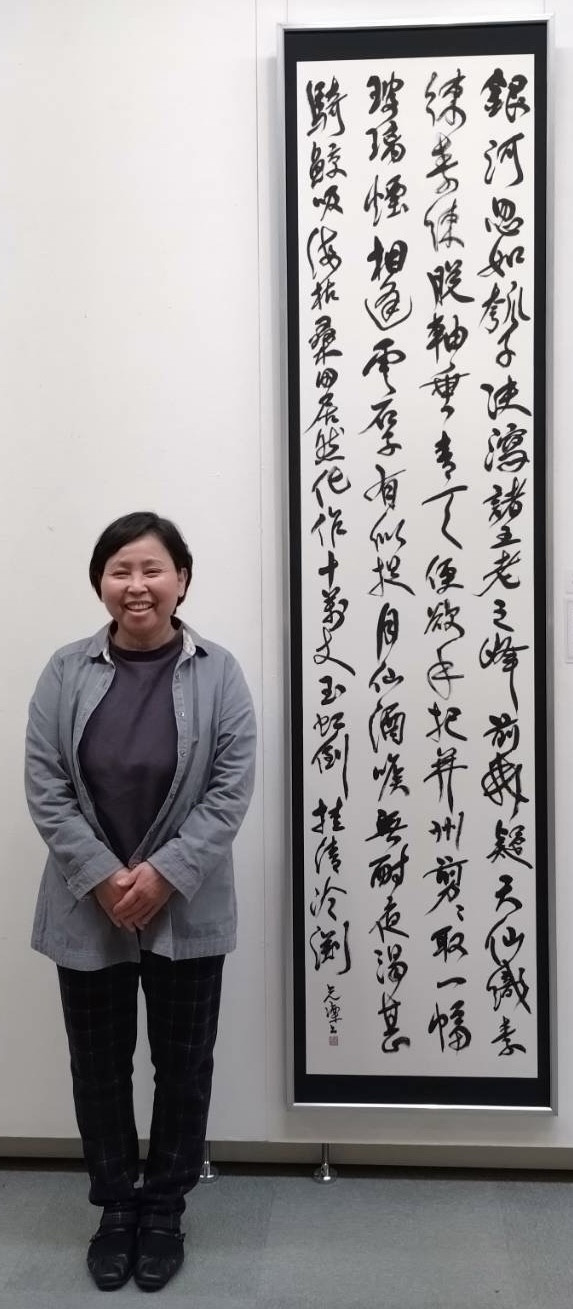 銀河忽如瓠子決瀉諸五老之峰前我疑天仙織素
練素練脱軸垂青天便欲手把并州剪〻取一幅
玻璃煙相逢雲石子有似捉月仙酒喉無耐夜渇甚
騎鯨吸海枯桑田居然化作十萬丈玉虹倒挂清泠淵